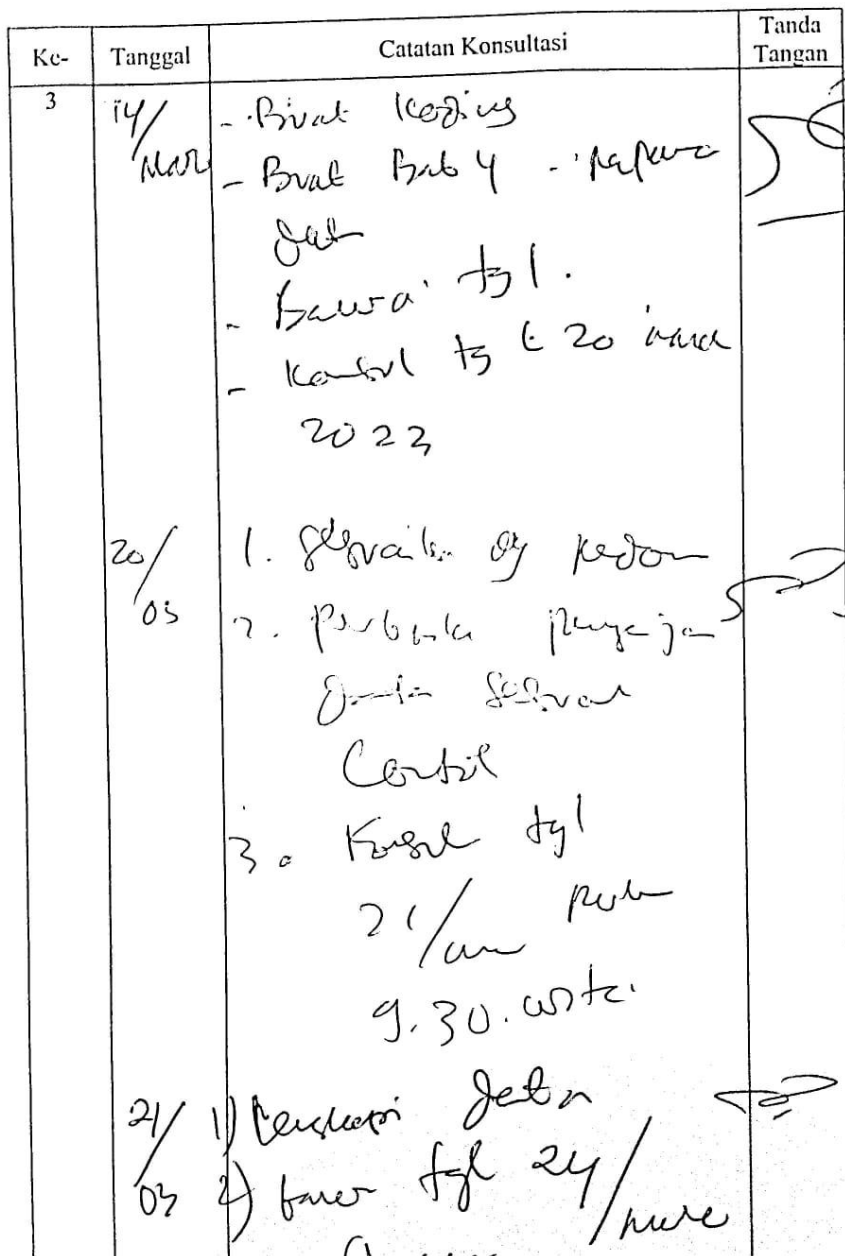 Ke- Tanggal Catatan Konsultasi Tanda Tangan
3 14/Mar - Buat Koding
- Buat Bab 4 - paparan
data
- Bawa tgl.
- Konsul tgl 20 maret
2023
20/03 1. Sesuaikan dg pedoman
2. Perbaiki penyajian
data sesuai
Contoh
3. Konsul tgl
21/mar pukul
9.30. wita.
21/03 1) Lengkapi data
2) bawa tgl 24/maret